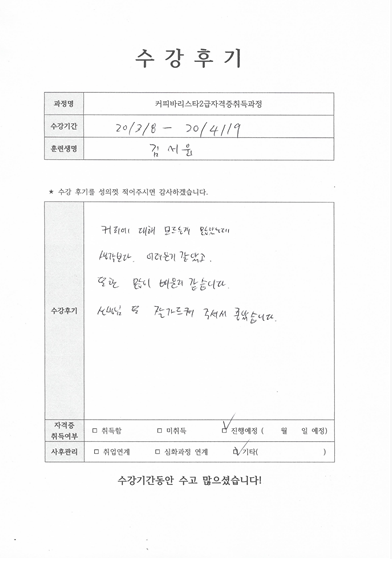 수강후기
과정명 커피바리스타2급자격증취득과정
수강기간 20/2/8 - 20/4/19
훈련생명 김서윤
★ 수강 후기를 성의껏 적어주시면 감사하겠습니다.
수강후기
커피에 대해 모르는게 많았는데
생각보다 어려운거 같았고.
또한 많이 배운거 같습니다.
선생님 도 잘가르쳐 주셔서 좋았습니다.
자격증 취득여부 □ 취득함 □ 미취득 ☑ 진행예정 ( 월 일 예정)
사후관리 □ 취업연계 □ 심화과정 연계 ☑ 기타( )
수강기간동안 수고 많으셨습니다!